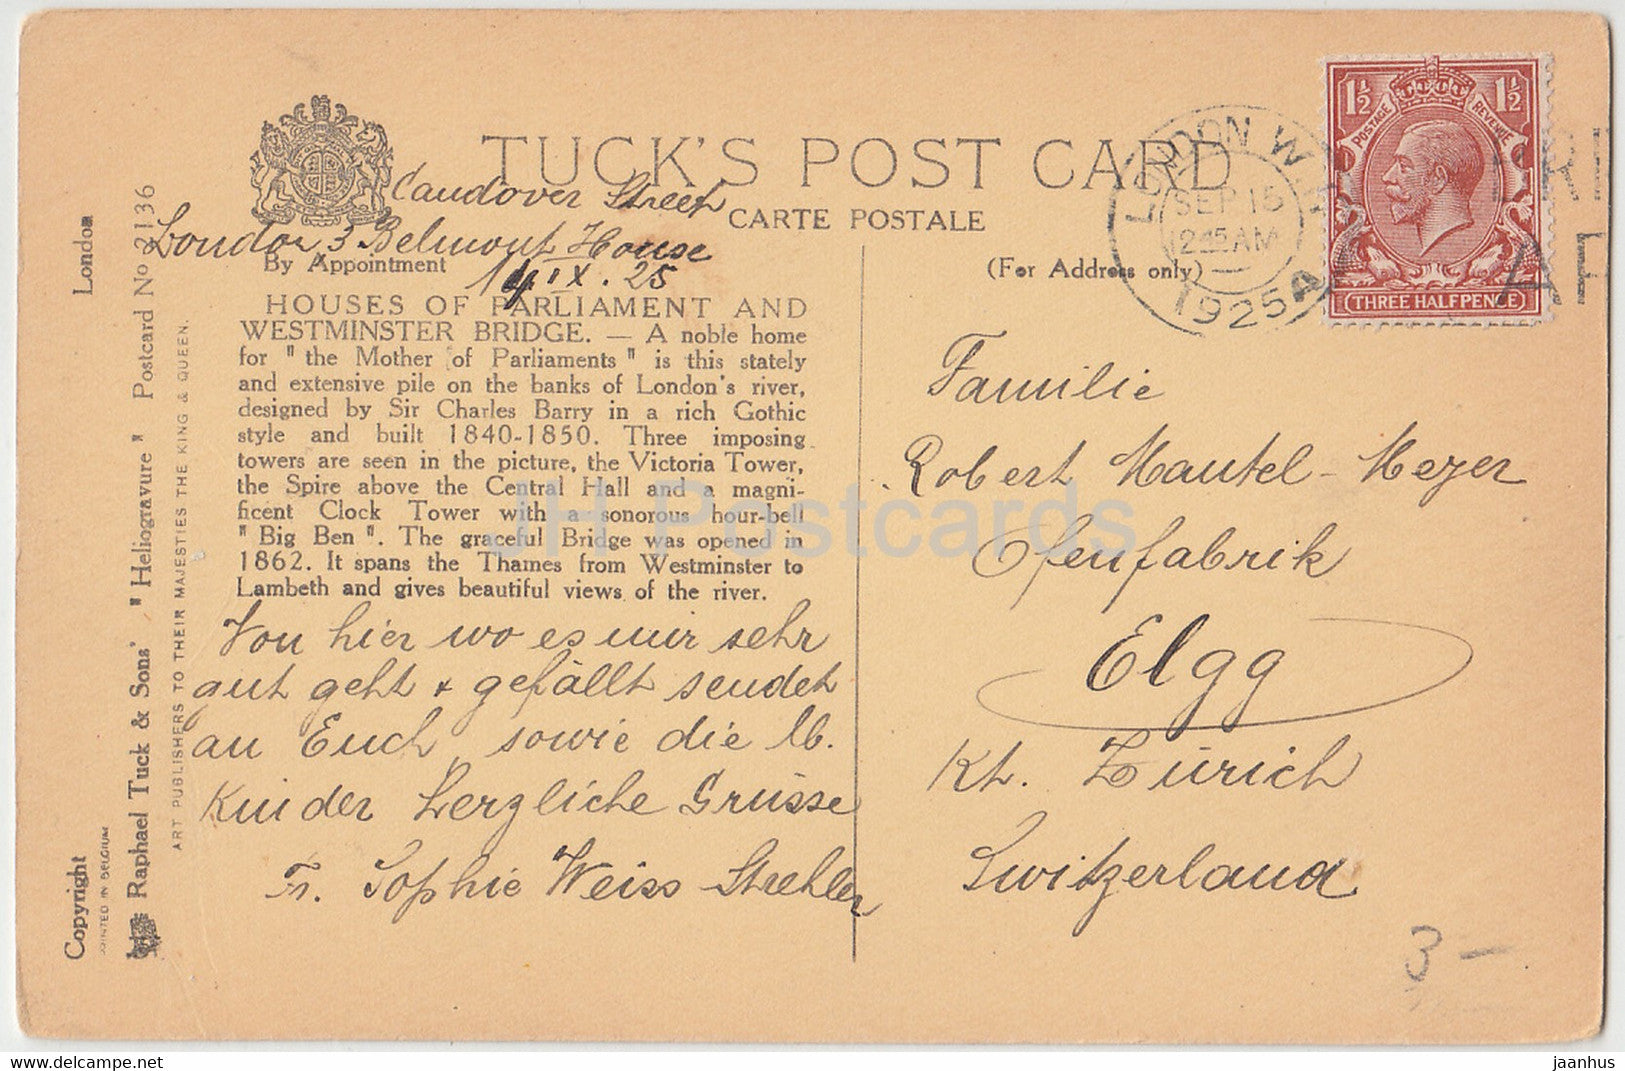 TUCK'S POST CARD
CARTE POSTALE
Caudover Street
London, 3 Belmont House
By Appointment
14 IX. 25
(For Address only)
HOUSES OF PARLIAMENT AND
WESTMINSTER BRIDGE. — A noble home
for " the Mother of Parliaments " is this stately
and extensive pile on the banks of London's river,
designed by Sir Charles Barry in a rich Gothic
style and built 1840-1850. Three imposing
towers are seen in the picture, the Victoria Tower,
the Spire above the Central Hall and a magni-
ficent Clock Tower with a sonorous hour-bell
" Big Ben ". The graceful Bridge was opened in
1862. It spans the Thames from Westminster to
Lambeth and gives beautiful views of the river.
Von hier wo es mir sehr
gut geht + gefällt sendet
an Euch sowie die lb.
Kinder herzliche Grüsse
Fr. Sophie Weiss-Strehler
Familie
Robert Mantel-Meyer
Ofenfabrik
Elgg
Kt. Zürich
Switzerland
3 -
LONDON W.
SEP 15
12.15 AM
1925
1½ 1½
POSTAGE REVENUE
THREE HALFPENCE
London
Copyright
PRINTED IN BELGIUM
Raphael Tuck & Sons' " Heliogravure " Postcard No 2136
ART PUBLISHERS TO THEIR MAJESTIES THE KING & QUEEN.
JH Postcards
hippostcard.com
jaanhus